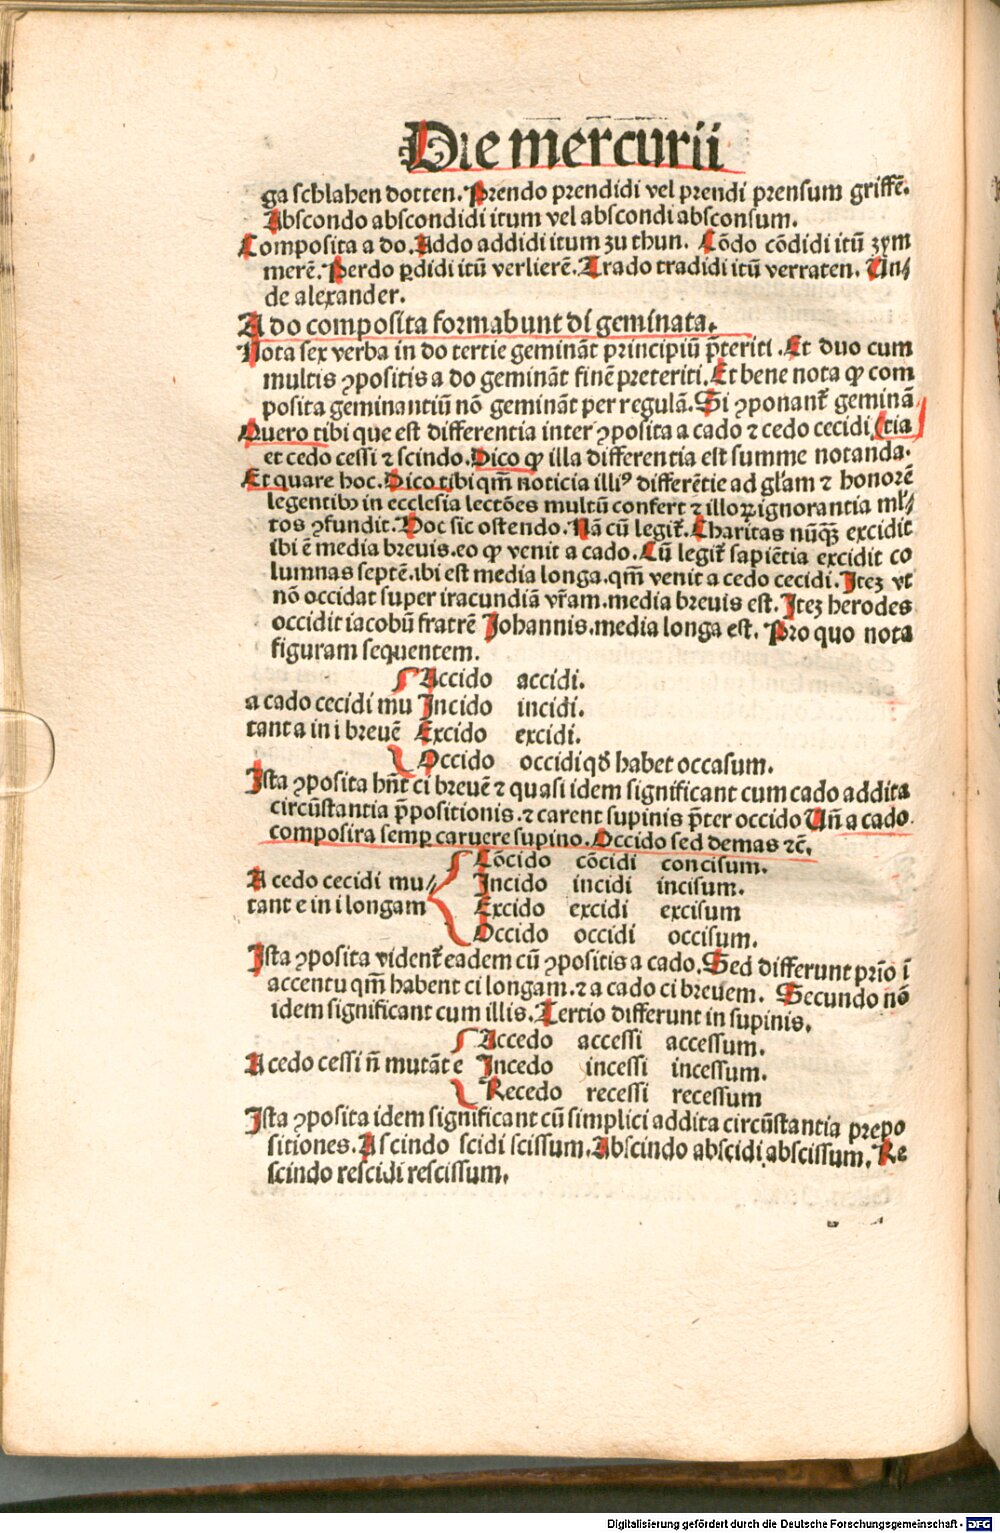 Die mercurii
ga schlahen dotten. Prendo prendidi vel prendi prensum griffē.
Abscondo abscondidi itum vel abscondi absconsum.
Composita a do. Addo addidi itum zu thun. Cōdo cōdidi itū zym
merē. Perdo ꝑdidi itū verlierē. Trado tradidi itū verraten. Un⸗
de alexander.
A do composita formabunt di geminata.
Nota sex verba in do tertie gemināt principiū p̄teriti. Et duo cum
multis ꝯpositis a do gemināt finē preteriti. Et bene nota ꝙ com
posita geminantiū nō gemināt per regulā. Si ꝯponant᷑ geminā
Quero tibi que est differentia inter ꝯposita a cado ⁊ cedo cecidi (tia
et cedo cessi ⁊ scindo. Dico ꝙ illa differentia est summe notanda.
Et quare hoc. Dico tibi qm̄ noticia illiꝰ differētie ad gl'am ⁊ honorē
legentibꝰ in ecclesia lectōes multū confert ⁊ illoꝝ ignorantia ml'⸗
tos ꝯfundit. Hoc sic ostendo. Nā cū legit᷑. Charitas nūqꝫ excidit
ibi ē media breuis. eo ꝙ venit a cado. Cū legit᷑ sapiētia excidit co
lumnas septē. ibi est media longa. qm̄ venit a cedo cecidi. Iteꝫ vt
nō occidat super iracundiā vr̄am. media breuis est. Iteꝫ herodes
occidit iacobū fratrē Johannis. media longa est. Pro quo nota
figuram sequentem.
Accido accidi.
a cado cecidi mu Incido incidi.
tant a in i breuē Excido excidi.
Occido occidi qđ habet occasum.
Ista ꝯposita hn̄t ci breuē ⁊ quasi idem significant cum cado addita
circūstantia p̄positionis. ⁊ carent supinis p̄ter occido Un̄ a cado.
composita semꝑ caruere supino. Occido sed demas ⁊c̄.
Cōcido cōcidi concisum.
A cedo cecidi mu⸗ Incido incidi incisum.
tant e in i longam Excido excidi excisum
Occido occidi occisum.
Ista ꝯposita vident᷑ eadem cū ꝯpositis a cado. Sed differunt prīo ī
accentu qm̄ habent ci longam. ⁊ a cado ci breuem. Secundo nō
idem significant cum illis. Tertio differunt in supinis.
Accedo accessi accessum.
A cedo cessi n̄ mutāt e Incedo incessi incessum.
Recedo recessi recessum
Ista ꝯposita idem significant cū simplici addita circūstantia prepo
sitiones. A scindo scidi scissum. Abscindo abscidi abscissum. Re
scindo rescidi rescissum.
Digitalisierung gefördert durch die Deutsche Forschungsgemeinschaft - DFG